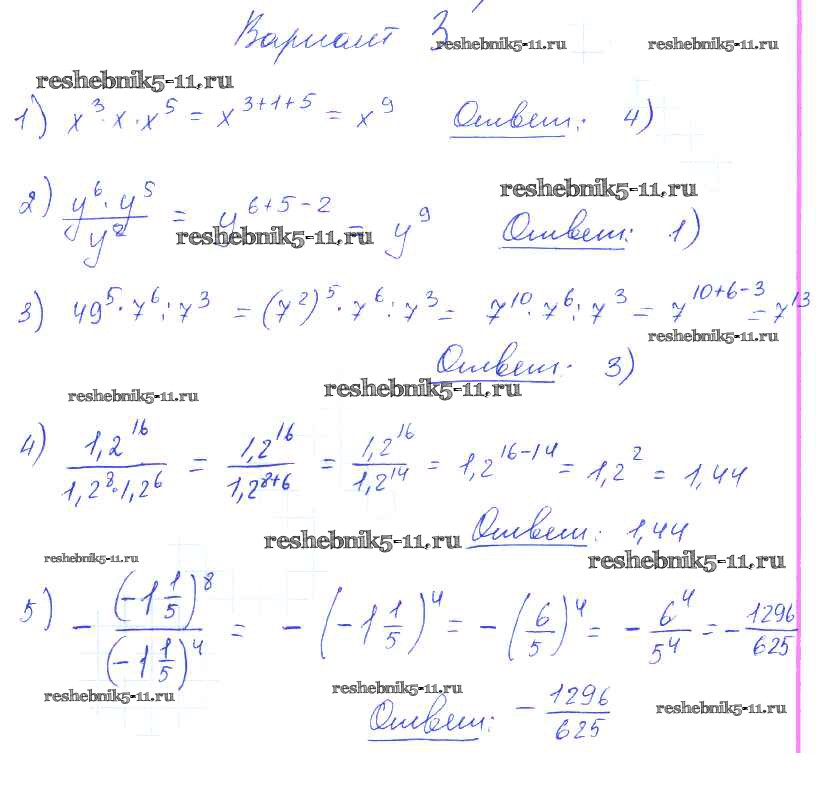 Вариант 3
reshebnik5-11.ru reshebnik5-11.ru
reshebnik5-11.ru
1) x³·x·x⁵ = x³⁺¹⁺⁵ = x⁹ Ответ: 4)
reshebnik5-11.ru
2) (y⁶·y⁵)/y² = y⁶⁺⁵⁻² = y⁹ Ответ: 1)
reshebnik5-11.ru
3) 49⁵·7⁶:7³ = (7²)⁵·7⁶:7³ = 7¹⁰·7⁶:7³ = 7¹⁰⁺⁶⁻³ = 7¹³
reshebnik5-11.ru
Ответ: 3)
reshebnik5-11.ru reshebnik5-11.ru
4) 1,2¹⁶/(1,2⁸·1,2⁶) = 1,2¹⁶/1,2⁸⁺⁶ = 1,2¹⁶/1,2¹⁴ = 1,2¹⁶⁻¹⁴ = 1,2² = 1,44
Ответ: 1,44
reshebnik5-11.ru
reshebnik5-11.ru reshebnik5-11.ru
5) -(-1 1/5)⁸/(-1 1/5)⁴ = -(-1 1/5)⁴ = -(6/5)⁴ = -6⁴/5⁴ = -1296/625
reshebnik5-11.ru reshebnik5-11.ru reshebnik5-11.ru
Ответ: -1296/625